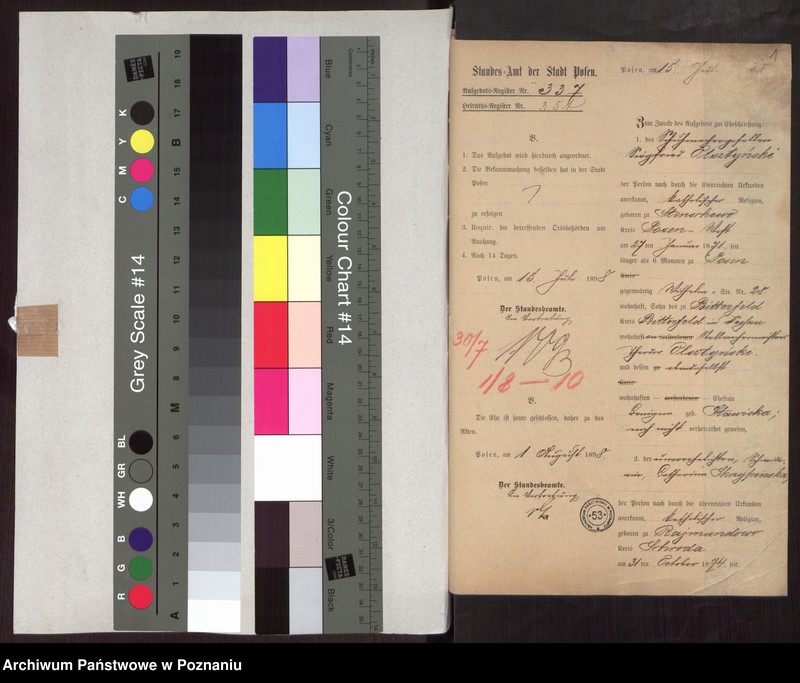 DANES
-PICTA
.COM
Grey Scale #14
C M Y K
R G B WH GR BL
A 1 2 3 4 5 6 M 8 9 10 11 12 13 14 15 B 17 18 19
Colour Chart #14
Blue
Cyan
Green
Yellow
Red
Magenta
White
3/Color
Black
Centimetres
Inches
1
Standes-Amt der Stadt Posen.
Aufgebots-Register Nr. 337
Heiraths-Register Nr.
V.
1. Das Aufgebot wird hierdurch angeordnet.
2. Die Bekanntmachung desselben hat in der Stadt
Posen
zu erfolgen
3. Requir. die betreffenden Ortsbehörden um
Aushang.
4. Nach 14 Tagen.
Posen, am 15 Juli 1898
Der Standesbeamte.
In Vertretung
30/7
1/8 — 10
V.
Die Ehe ist heute geschlossen, daher zu den
Akten.
Posen, am 1 August 1898.
Der Standesbeamte.
In Vertretung
53
Posen, am 15 Juli
Zum Zwecke des Aufgebots zur Eheschließung:
1. der Schuhmachergeselle
Siegfried Olsztyński
der Person nach durch die überreichten Urkunden
anerkannt, katholischer Religion,
geboren zu Stenschewo
Kreis Posen - West
am 27ten Januar 1871, seit
länger als 6 Monaten zu Posen
Kreis
gegenwärtig Wilhelm - Str. Nr. 28
wohnhaft, Sohn des zu Bitterfeld
Kreis Bitterfeld in
wohnhaften
Olsztyński
und dessen
Kreis
wohnhaften Ehefrau
geb. Stawicka;
noch nicht verheirathet gewesen,
2. der unverehelichten
Catharina
der Person nach durch die überreichten Urkunden
anerkannt, katholischer Religion,
geboren zu Rajmundowo
Kreis Schroda
am 31ten October 1874, seit
Archiwum Państwowe w Poznaniu